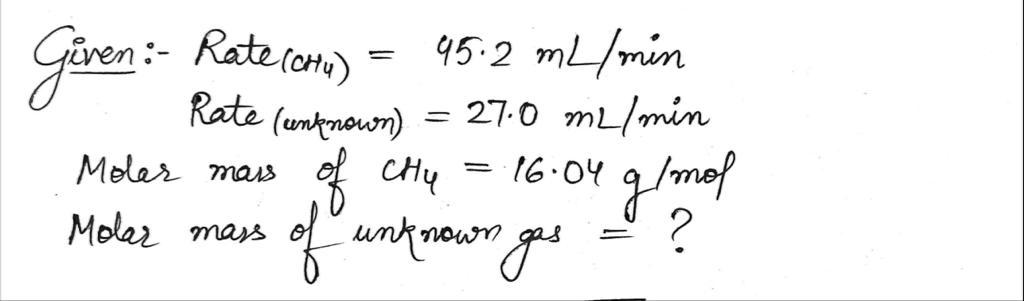 Given :- Rate (CH4) = 95.2 mL/min
Rate (unknown) = 27.0 mL/min
Molar mass of CH4 = 16.04 g/mol
Molar mass of unknown gas = ?